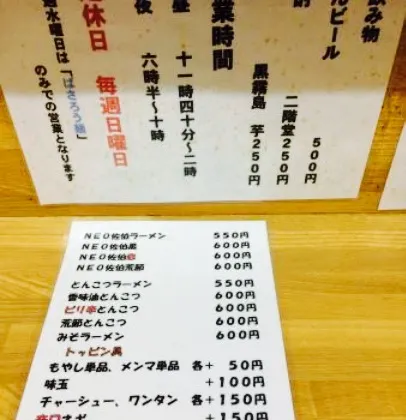 飲み物
んビール
５００円
二階堂２５０円
黒霧島 芋２５０円
業時間
昼 十一時四十分～二時
夜 六時半～十時
定休日 毎週日曜日
週水曜日は「ばさろう麺」
のみでの営業となります
ＮＥＯ佐伯ラーメン ５５０円
ＮＥＯ佐伯黒 ６００円
ＮＥＯ佐伯 ６００円
ＮＥＯ佐伯荒節 ６００円
とんこつラーメン ５５０円
香味油とんこつ ６００円
ピリ辛とんこつ ６００円
荒節とんこつ ６００円
みそラーメン ６００円
トッピング
もやし単品、メンマ単品 各＋ ５０円
味玉 ＋１００円
チャーシュー、ワンタン 各＋１５０円
辛口ネギ ＋１５０円